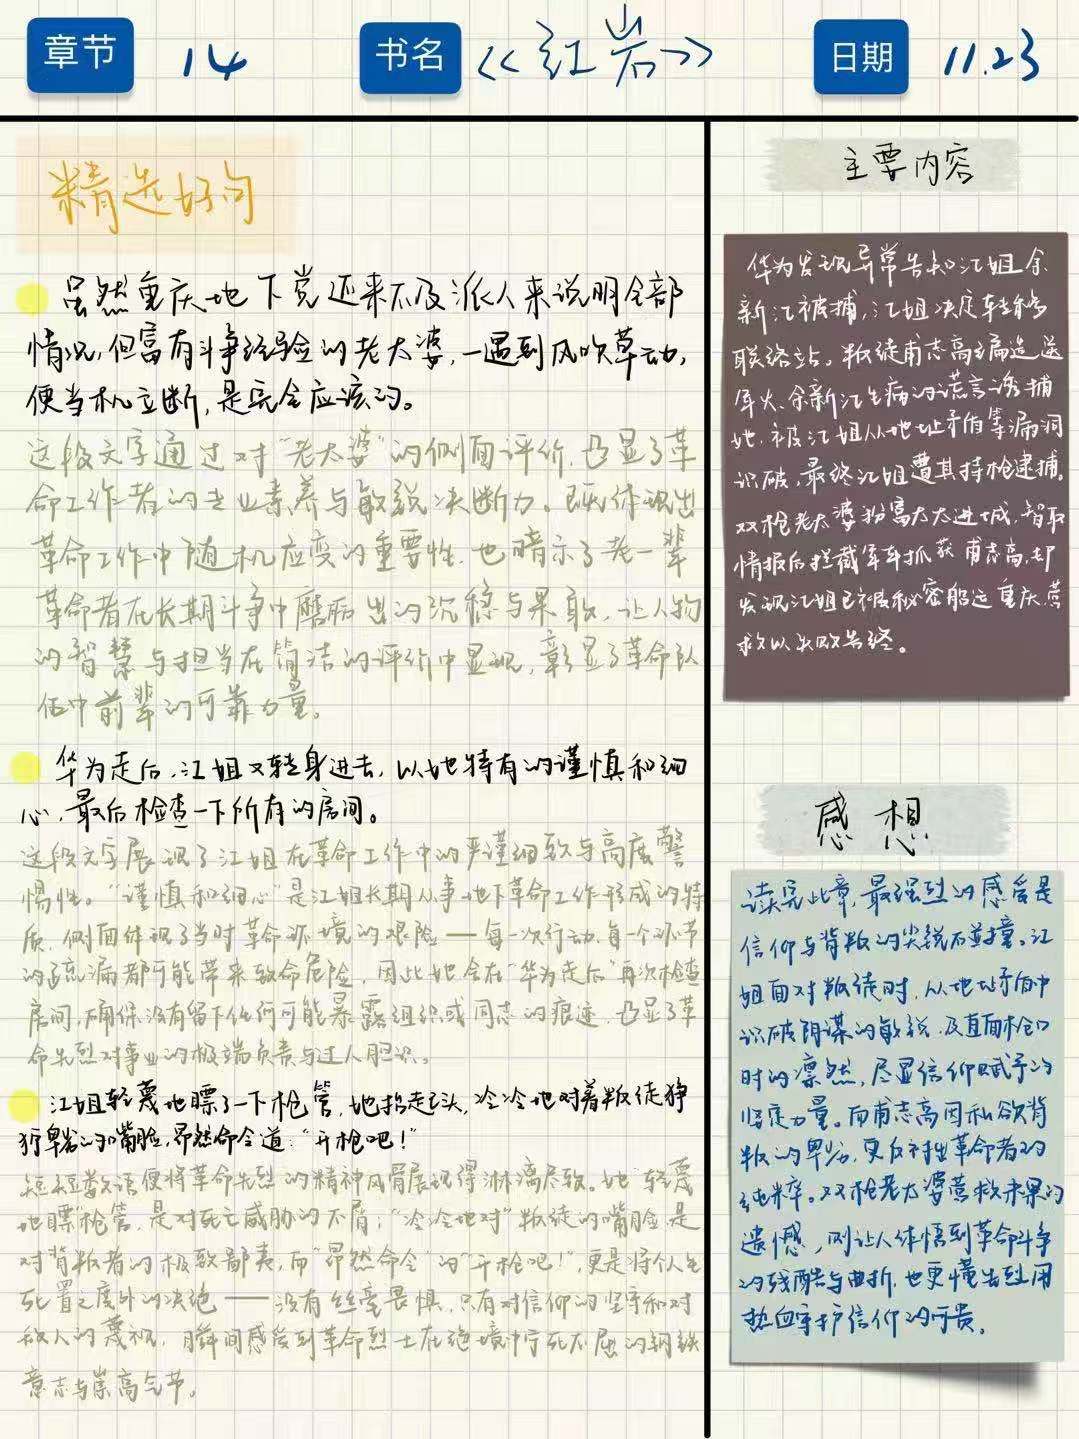 章节 14 书名 《红岩》 日期 11.23
精选好句
虽然重庆地下党还来不及派人来说明全部
情况,但富有斗争经验的老太婆,一遇到风吹草动,
便当机立断,是完全应该的。
这段文字通过对“老太婆”的侧面评价,凸显了革
命工作者的专业素养与敏锐决断力。既体现出
革命工作中随机应变的重要性,也暗示了老一辈
革命者在长期斗争中磨砺出的沉稳与果敢,让人物
的智慧与担当在简洁的评价中显现,彰显了革命队
伍中前辈的可靠力量。
华为走后,江姐又转身进去,以她特有的谨慎和细
心,最后检查一下所有的房间。
这段文字展现了江姐在革命工作中的严谨细致与高度警
惕性。“谨慎和细心”是江姐长期从事地下革命工作形成的特
质,侧面体现了当时革命环境的艰险——每一次行动、每一个环节
的疏漏都可能带来致命危险,因此她会在“华为走后”再次检查
房间,确保没有留下任何可能暴露组织或同志的痕迹,凸显了革
命先烈对事业的极端负责与过人胆识。
江姐轻蔑地瞟了一下枪管,她抬起头,冷冷地对着叛徒狰
狞卑劣的嘴脸,昂然命令道:“开枪吧!”
短短数语便将革命先烈的精神风骨展现得淋漓尽致。她“轻蔑
地瞟”枪管,是对死亡威胁的不屑;“冷冷地对”叛徒的嘴脸,是
对背叛者的极致鄙夷,而“昂然命令”的“开枪吧!”,更是将个人生
死置之度外的决绝——没有丝毫畏惧,只有对信仰的坚守和对
敌人的蔑视,瞬间感受到革命烈士在绝境中宁死不屈的钢铁
意志与崇高气节。
主要内容
华为发现异常告知江姐余
新江被捕,江姐决定转移
联络站。叛徒甫志高编造送
军火、余新江生病的谎言诱捕
她,被江姐从地址矛盾等漏洞
识破,最终江姐遭其持枪逮捕。
双枪老太婆扮富太太进城,智取
情报后拦截军车抓获甫志高,却
发现江姐已被秘密船运重庆,营
救以失败告终。
感想
读完此章,最强烈的感受是
信仰与背叛的尖锐碰撞。江
姐面对叛徒时,从地址矛盾中
识破阴谋的敏锐,及直面枪口
时的凛然,尽显信仰赋予的
坚定力量。而甫志高因私欲背
叛的卑劣,更反衬出革命者的
纯粹。双枪老太婆营救未果的
遗憾,则让人体悟到革命斗争
的残酷与曲折,也更懂先烈用
热血守护信仰的可贵。